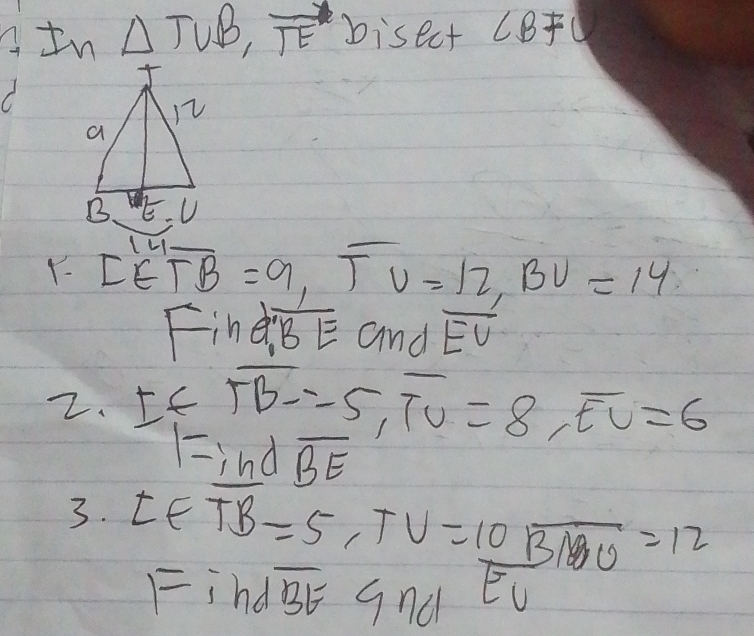 In Δ TUB, TE bisect ∠BTU
T
9 12
B E U
14
1. If TB = 9, TU = 12, BU = 14.
Find BE and EU
2. If TB = 5, TU = 8, EU = 6
Find BE
3. If TB = 5, TU = 10 BU = 12
Find BE and EU